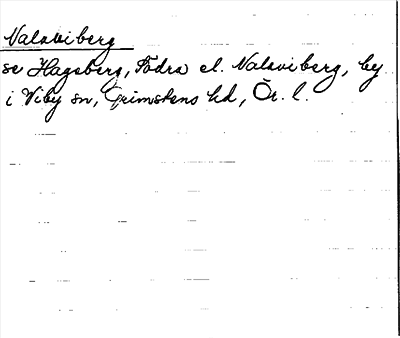 Nalaviberg
se Hagaberg, Södra el. Nalaviberg, by
i Viby sn, Grimstens hd, Ör. l.